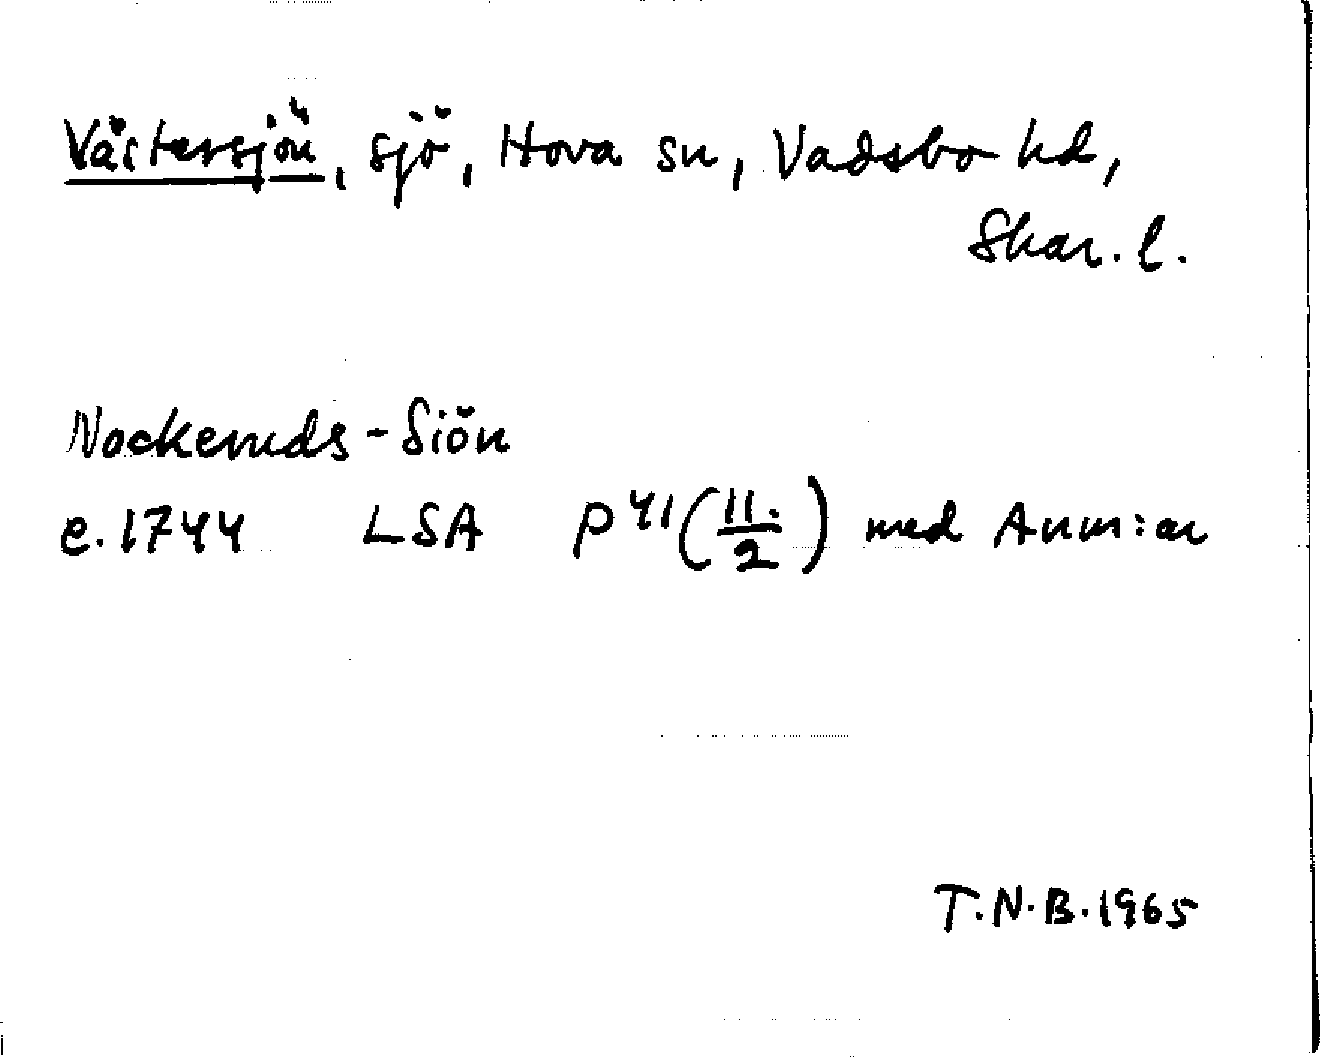 Västersjön, sjö, Hova sn, Vadsbo hd,
Skar. l.
Nockeruds-Siön
e. 1744 LSA P 41 (11:/2) med Anm:ar
T.N.B. 1965